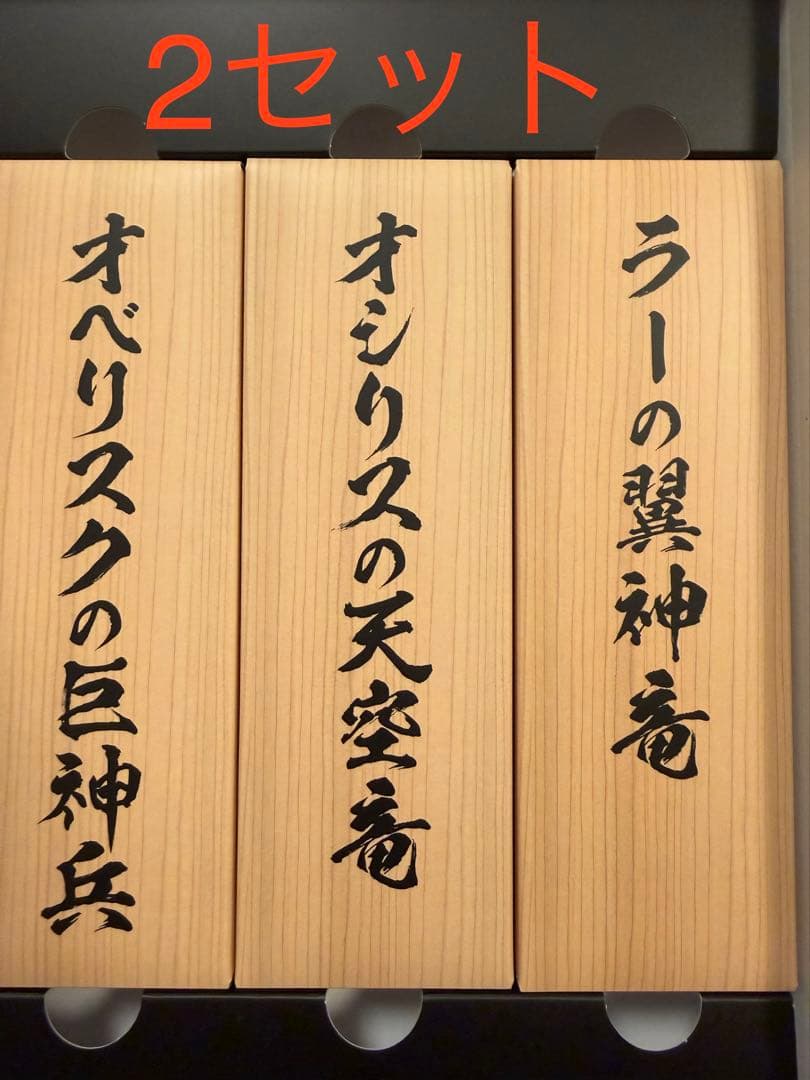 2セット
ラーの翼神竜
オシリスの天空竜
オベリスクの巨神兵